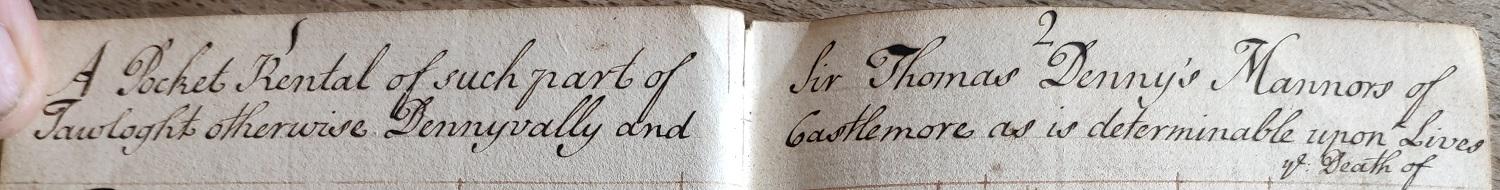 1
A Pocket Rental of such part of
Tawloght otherwise Dennyvally and
2
Sir Thomas Denny's Mannors of
Castlemore as is determinable upon Lives
yᵉ: Death of